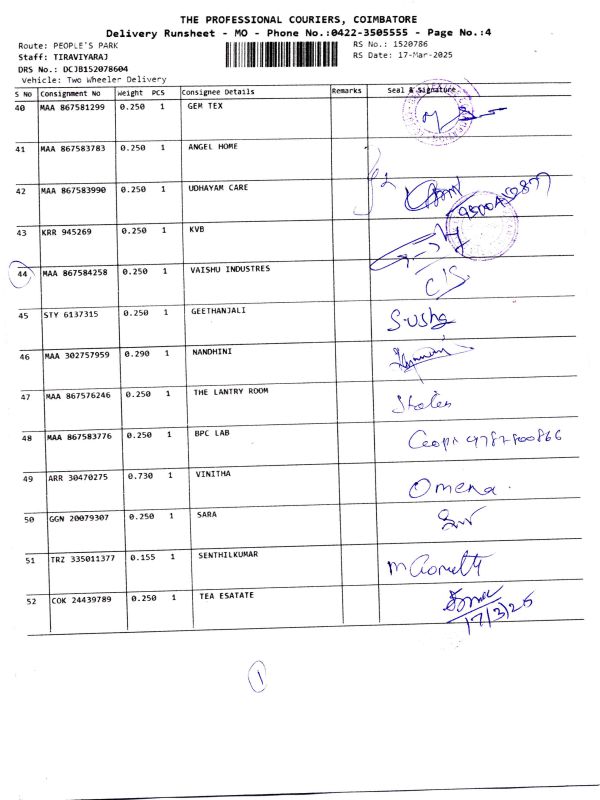 THE PROFESSIONAL COURIERS, COIMBATORE
Delivery Runsheet - MO - Phone No.:0422-3505555 - Page No.:4
Route: PEOPLE'S PARK RS No.: 1520786
Staff: TIRAVIYARAJ RS Date: 17-Mar-2025
DRS No.: DCJB152078604
Vehicle: Two Wheeler Delivery
S No Consignment No Weight PCS Consignee Details Remarks Seal & Signature
40 MAA 867581299 0.250 1 GEM TEX
41 MAA 867583783 0.250 1 ANGEL HOME
42 MAA 867583990 0.250 1 UDHAYAM CARE
43 KRR 945269 0.250 1 KVB
44 MAA 867584258 0.250 1 VAISHU INDUSTRES
45 STY 6137315 0.250 1 GEETHANJALI
46 MAA 302757959 0.290 1 NANDHINI
47 MAA 867576246 0.250 1 THE LANTRY ROOM
48 MAA 867583776 0.250 1 BPC LAB
49 ARR 30470275 0.730 1 VINITHA Omena.
50 GGN 20079307 0.250 1 SARA
51 TRZ 335011377 0.155 1 SENTHILKUMAR
52 COK 24439789 0.250 1 TEA ESATATE
17/3/25
1